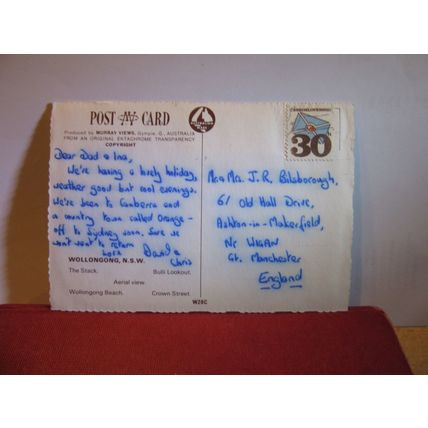 POST MV CARD
Produced by MURRAY VIEWS, Gympie, Q., AUSTRALIA
FROM AN ORIGINAL EKTACHROME TRANSPARENCY
COPYRIGHT
Dear Dad & Ina,
We're having a lovely holiday,
weather good but cool evenings.
We've been to Canberra and
a country town called Orange -
off to Sydney soon. Sure us
wont want to return
David &
Chris
WOLLONGONG, N.S.W.
The Stack. Bulli Lookout.
Aerial view.
Wollongong Beach. Crown Street.
W28C
30
Mr & Mrs. J. R. Bilsborough,
61 Old Hall Drive,
Ashton-in-Makerfield,
Nr WIGAN
Gt. Manchester
England